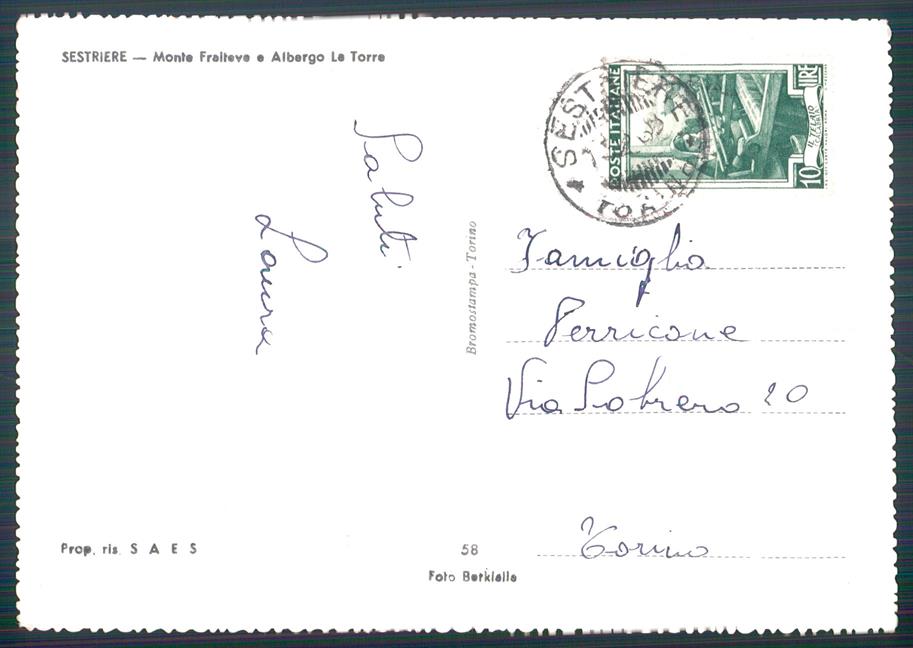 SESTRIERE — Monte Fraiteve e Albergo La Torre
Saluti
Laura
Bromostampa - Torino
SESTRIERE
TORINO
POSTE ITALIANE
10 LIRE
IL TELAIO
Famiglia
Perricone
Via Sobrero 20
Torino
Prop. ris. S A E S
58
Foto Berklalla